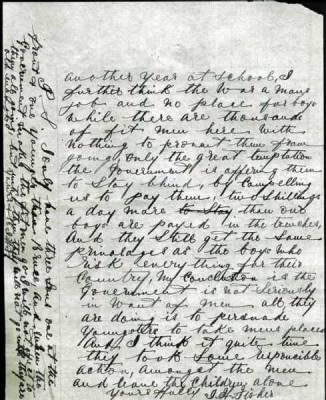 another Year at School, I
further think the War a mans
job and no place for boys
while there are thousands
of fit men here with
nothing to prevent them from
going, only the great temptation
the Government is offering them
to Stay behind, by Compelling
us to pay them, two Shillings
a day more to Stay than our
boys are payed in the trenches,
And they Still get the Same
privalages as the boys who
risk everything for this
Country, My Conclusion is the
Government is not Seriously
in Want of Men all they
are doing is to persuade
Youngsters to take mens places
And, I think it quite time
they took Some responsible
action, Amongst the men
and leave the Children alone
Yours Fully J H Fisher
P S I only have three Sons one at the
front & one Younger than Bruce And when the
Government make the fit men